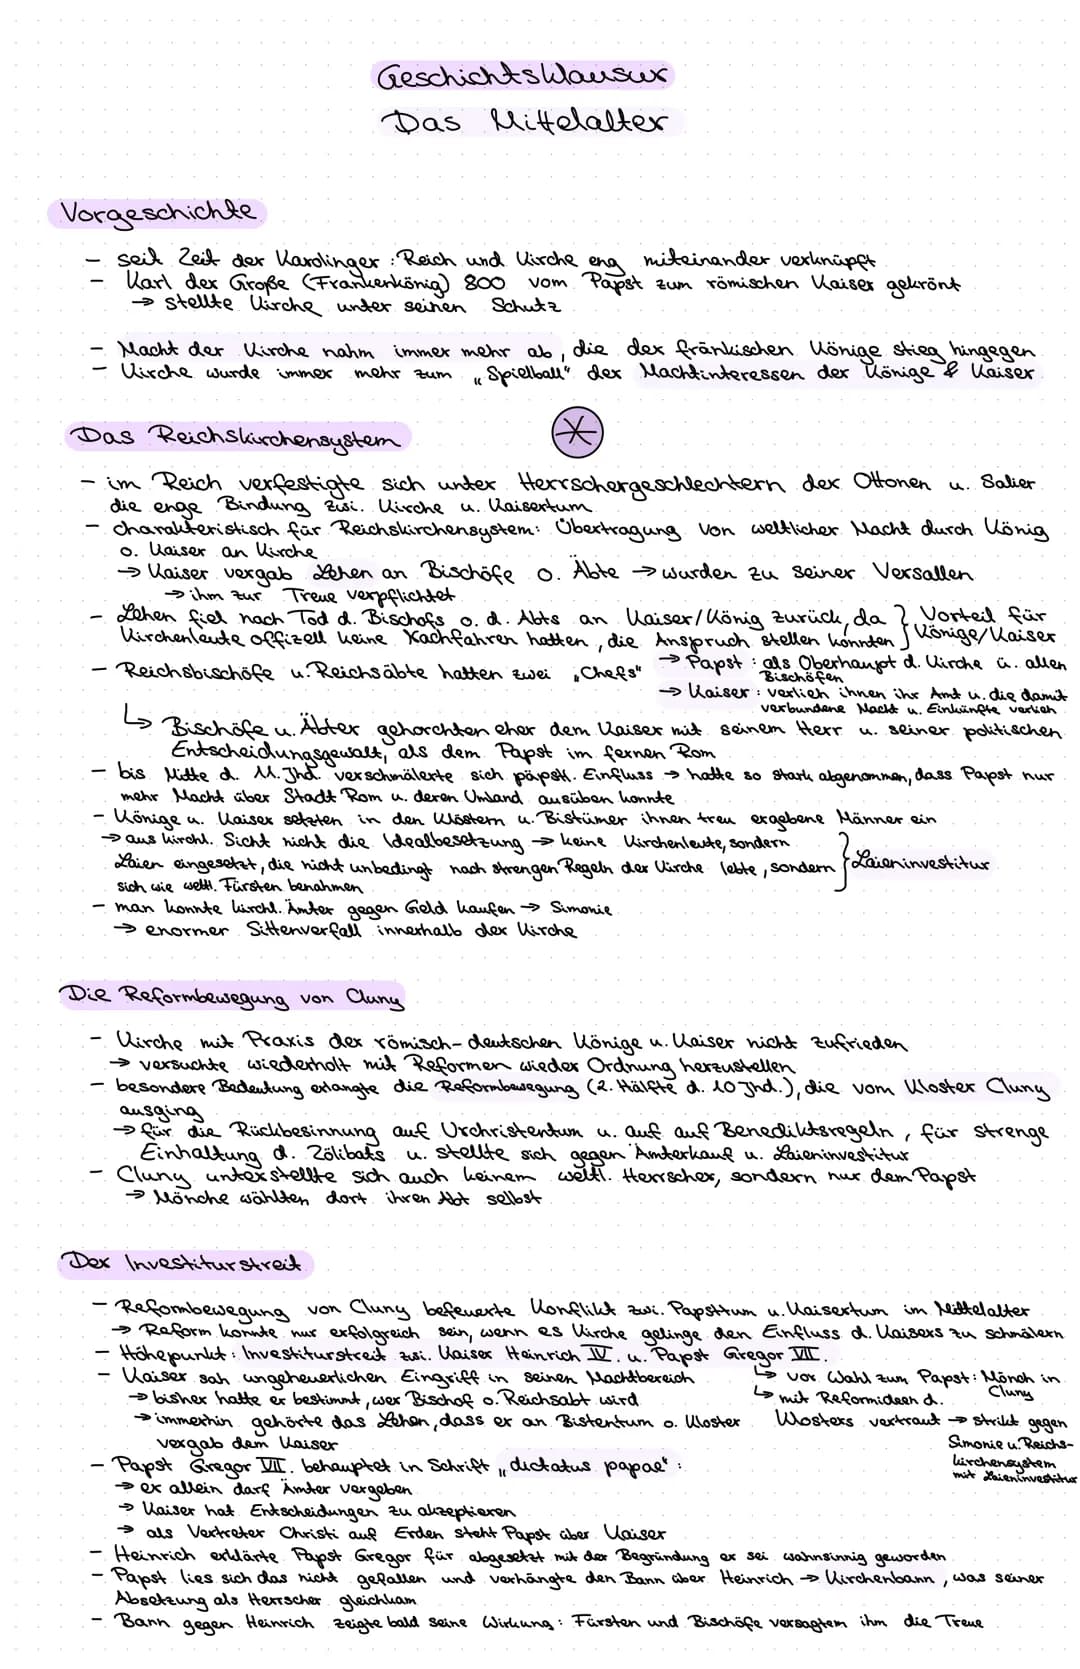 Geschichtsklausur
Das Mittelalter
Vorgeschichte
- seit Zeit der Karolinger : Reich und Kirche eng miteinander verknüpft
- Karl der Große (Frankenkönig) 800 vom Papst zum römischen Kaiser gekrönt
→ stellte Kirche unter seinen Schutz
- Macht der Kirche nahm immer mehr ab, die der fränkischen Könige stieg hingegen
- Kirche wurde immer mehr zum „Spielball" der Machtinteressen der Könige & Kaiser
Das Reichskirchensystem
- im Reich verfestigte sich unter Herrschergeschlechtern der Ottonen u. Salier
die enge Bindung zwi. Kirche u. Kaisertum
- charakteristisch für Reichskirchensystem: Übertragung von weltlicher Macht durch König
o. Kaiser an Kirche
→ Kaiser vergab Lehen an Bischöfe o. Äbte → wurden zu seiner Versallen
→ ihm zur Treue verpflichtet
- Lehen fiel nach Tod d. Bischofs o. d. Abts an Kaiser/König zurück, da } Vorteil für
Kirchenleute offizell keine Nachfahren hatten, die Anspruch stellen konnten } Könige/Kaiser
- Reichsbischöfe u. Reichsäbte hatten zwei „Chefs" → Papst : als Oberhaupt d. Kirche ü. allen
Bischöfen
→ Kaiser : verlieh ihnen ihr Amt u. die damit
verbundene Macht u. Einkünfte verlieh
↳ Bischöfe u. Äbter gehorchten eher dem Kaiser mit seinem Herr u. seiner politischen
Entscheidungsgewalt, als dem Papst im fernen Rom
- bis Mitte d. 11. Jhd. verschmälerte sich päpstl. Einfluss → hatte so stark abgenommen, dass Papst nur
mehr Macht über Stadt Rom u. deren Umland ausüben konnte
- Könige u. Kaiser setzten in den Klöstern u. Bistümer ihnen treu ergebene Männer ein
→ aus kirchl. Sicht nicht die Idealbesetzung → keine Kirchenleute, sondern
Laien eingesetzt, die nicht unbedingt nach strengen Regeln der Kirche lebte, sondern } Laieninvestitur
sich wie weltl. Fürsten benahmen
- man konnte kirchl. Ämter gegen Geld kaufen → Simonie
→ enormer Sittenverfall innerhalb der Kirche
Die Reformbewegung von Cluny
- Kirche mit Praxis der römisch-deutschen Könige u. Kaiser nicht zufrieden
→ versuchte wiederholt mit Reformen wieder Ordnung herzustellen
- besondere Bedeutung erlangte die Reformbewegung (2. Hälfte d. 10 Jhd.), die vom Kloster Cluny
ausging
→ für die Rückbesinnung auf Urchristentum u. auf auf Benediktsregeln, für strenge
Einhaltung d. Zölibats u. stellte sich gegen Ämterkauf u. Laieninvestitur
- Cluny unterstellte sich auch keinem weltl. Herrscher, sondern nur dem Papst
→ Mönche wählten dort ihren Abt selbst
Der Investiturstreit
- Reformbewegung von Cluny befeuerte Konflikt zwi. Papsttum u. Kaisertum im Mittelalter
→ Reform konnte nur erfolgreich sein, wenn es Kirche gelinge den Einfluss d. Kaisers zu schmälern
- Höhepunkt : Investiturstreit zwi. Kaiser Heinrich IV. u. Papst Gregor VII.
- Kaiser sah ungeheuerlichen Eingriff in seinen Machtbereich
→ bisher hatte er bestimmt, wer Bischof o. Reichsabt wird
→ immerhin gehörte das Lehen, dass er an Bistentum o. Kloster
vergab dem Kaiser
↳ vor Wahl zum Papst: Mönch in
Cluny
↳ mit Reformideen d.
Klosters vertraut → strikt gegen
Simonie u. Reichs-
kirchensystem
mit Laieninvestitur
- Papst Gregor VII. behauptet in Schrift „dictatus papae" :
→ er allein darf Ämter vergeben
→ Kaiser hat Entscheidungen zu akzeptieren
→ als Vertreter Christi auf Erden steht Papst über Kaiser
- Heinrich erklärte Papst Gregor für abgesetzt mit der Begründung er sei wahnsinnig geworden
- Papst lies sich das nicht gefallen und verhängte den Bann über Heinrich → Kirchenbann, was seiner
Absetzung als Herrscher gleichkam
- Bann gegen Heinrich zeigte bald seine Wirkung : Fürsten und Bischöfe versagtem ihm die Treue